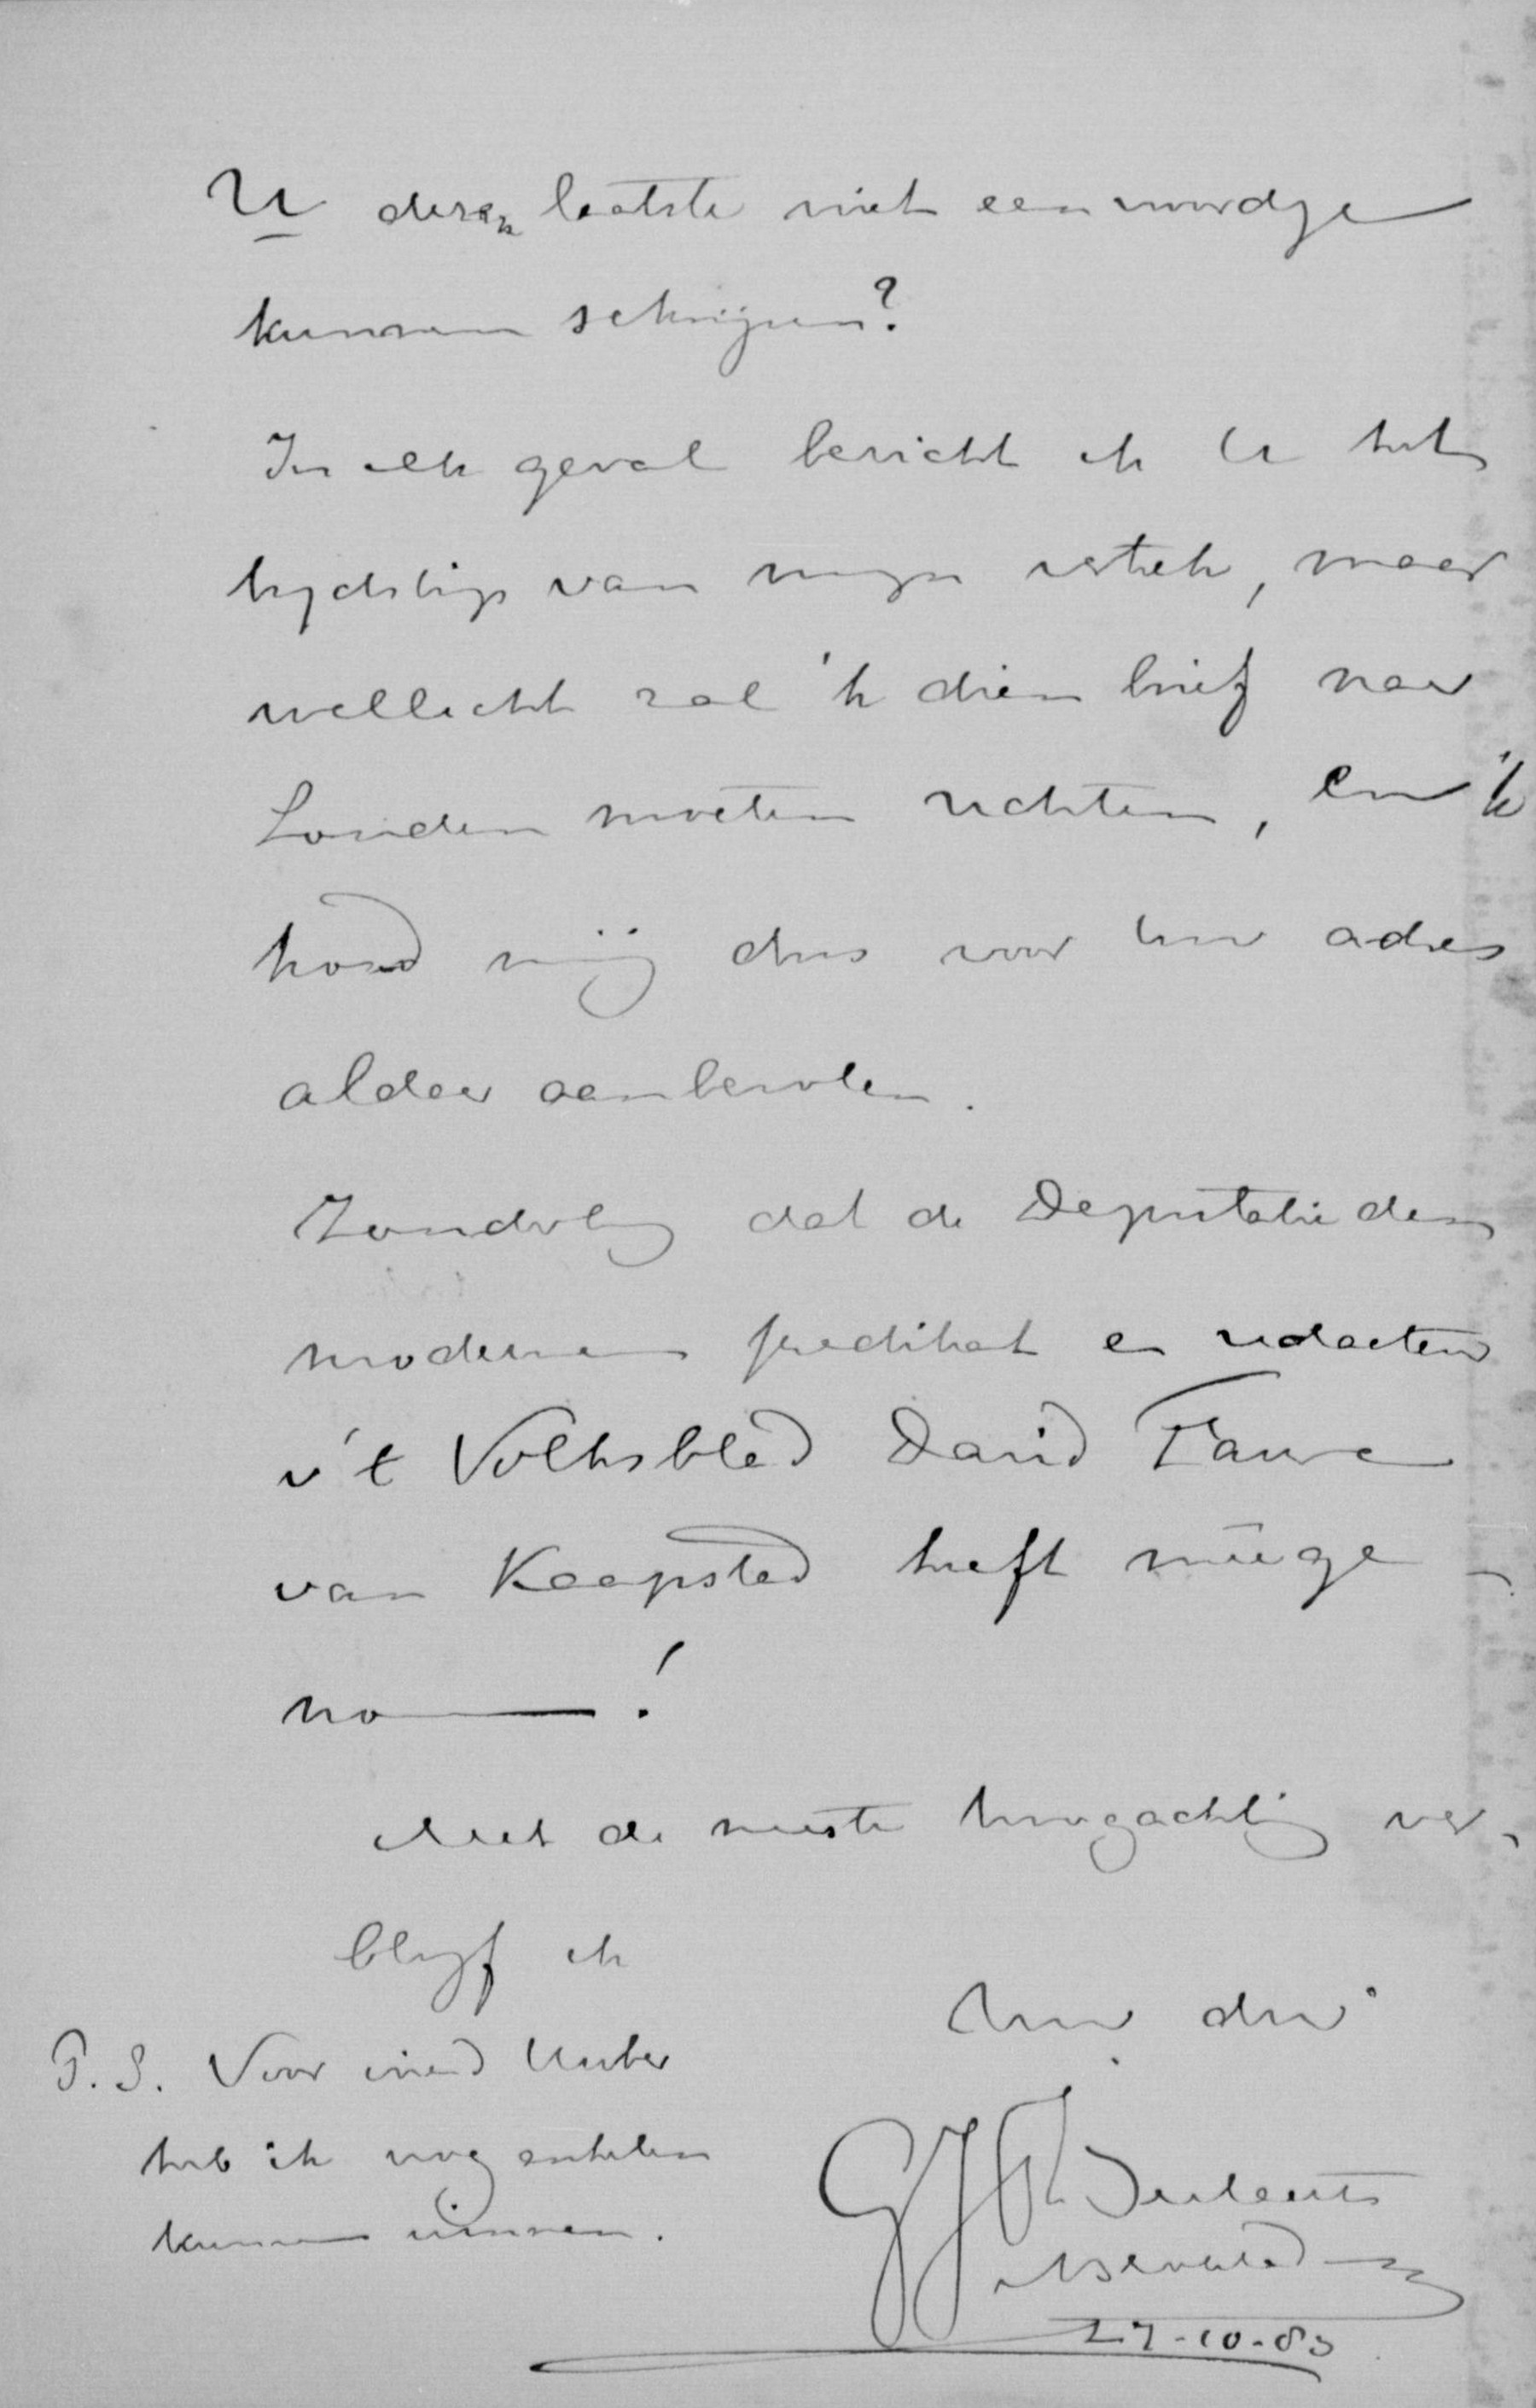 U dezen laatste niet een woordje
kunnen schrijven?
In elk geval bericht ik U het
tijdstip van mijn vertrek, maar
wellicht zal 'k dien brief naar
Londen moeten richten, en 'k
houd mij dus voor Uw adres
aldaar aanbevolen.
Zonderling dat de Deputatie den
modernen predikant en redacteur
v 't Volksblad David Faure
van Kaapstad heeft meege-
no !
Met de meeste hoogachting ver-
blijf ik
Uw dw
P. S. Voor
heb ik nog enkelen
kunnen winnen.
27-10-83